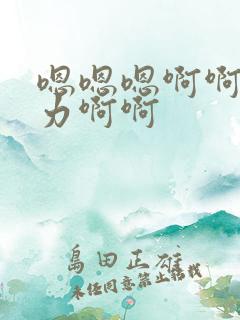 嗯嗯嗯啊啊
力啊啊
島田正雄
未经同意禁止转载